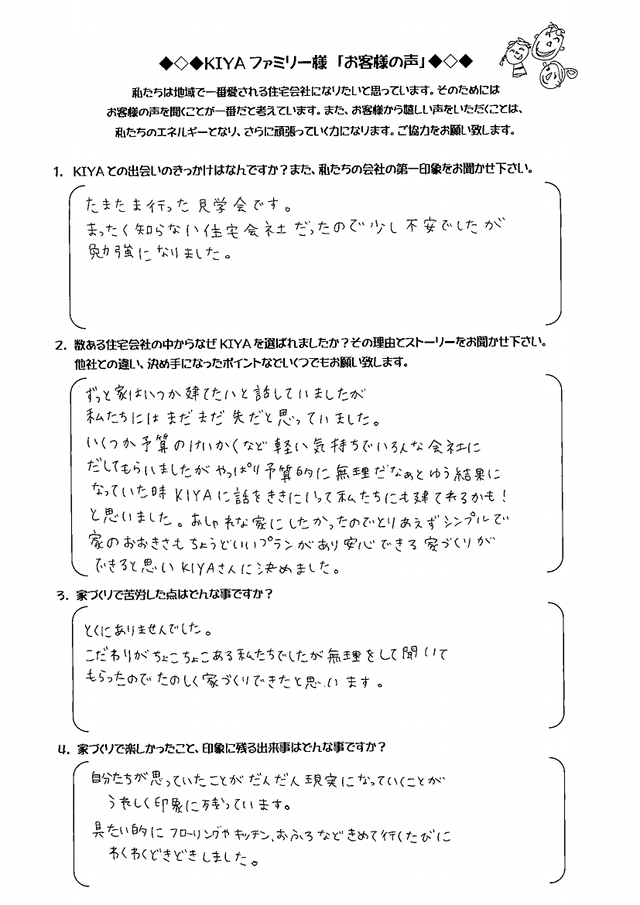 ◆◇◆KIYAファミリー様「お客様の声」◆◇◆
私たちは地域で一番愛される住宅会社になりたいと思っています。そのためには
お客様の声を聞くことが一番だと考えています。また、お客様から嬉しい声をいただくことは、
私たちのエネルギーとなり、さらに頑張っていく力になります。ご協力をお願い致します。
1. KIYAとの出会いのきっかけはなんですか?また、私たちの会社の第一印象をお聞かせ下さい。
たまたま行った見学会です。
まったく知らない住宅会社だったので少し不安でしたが
勉強になりました。
2. 数ある住宅会社の中からなぜKIYAを選ばれましたか?その理由とストーリーをお聞かせ下さい。
他社との違い、決め手になったポイントなどいくつでもお願い致します。
ずっと家はいつか建てたいと話していましたが
私たちにはまだまだ先だと思っていました。
いくつか予算のけいかくなど軽い気持ちでいろんな会社に
だしてもらいましたがやっぱり予算的に無理だなぁとゆう結果に
なっていた時KIYAに話をききにいって私たちにも建てれるかも!
と思いました。おしゃれな家にしたかったのでとりあえずシンプルで
家のおおきさもちょうどいいプランがあり安心できる家づくりが
できると思いKIYAさんに決めました。
3. 家づくりで苦労した点はどんな事ですか?
とくにありませんでした。
こだわりがちょこちょこある私たちでしたが無理をして聞いて
もらったのでたのしく家づくりできたと思います。
4. 家づくりで楽しかったこと、印象に残る出来事はどんな事ですか?
自分たちが思っていたことがだんだん現実になっていくことが
うれしく印象に残っています。
具たい的にフローリングやキッチン、おふろなどきめて行くたびに
わくわくどきどきしました。